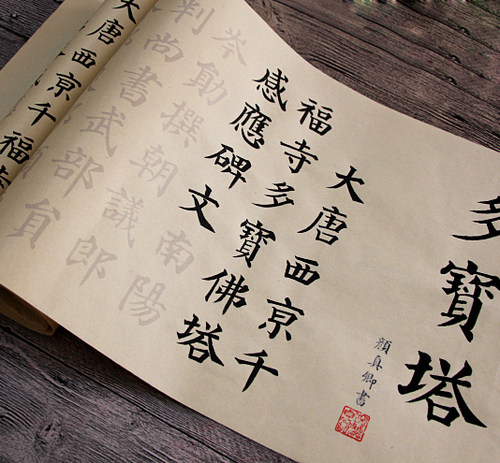 多寶塔
顏真卿書
大唐西京千
福寺多寶佛塔
感應碑文南陽
岑勛撰朝議郎
判尚書武部員
大唐西京千福